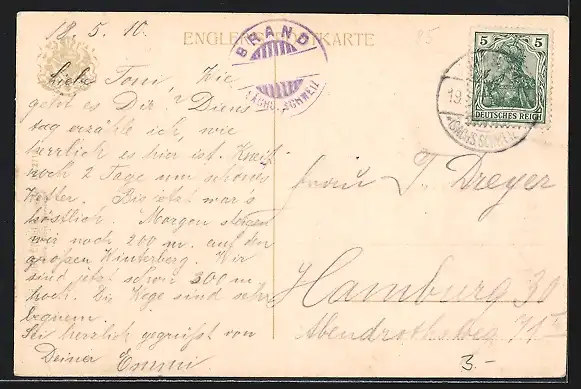 18. 5. 10.
ENGLER'S POSTKARTE
95
BRAND
SÄCHS. SCHWEIZ
5 5
DEUTSCHES REICH
19.
(SÄCHS. SCHWEIZ)
Liebe Toni, Wie
geht es Dir? Diens
tag erzähle ich, wie
herrlich es hier ist.
noch 2 Tage nur schönes
Wetter. Bis jetzt war's
köstlich. Morgen steigen
wir noch 200 m. auf den
großen Winterberg. Wir
sind jetzt schon 300 m
hoch. Die Wege sind sehr
bequem.
Sei herzlich gegrüßt von
Deiner Emmi
T. Dreyer
Hamburg 30
Abendrothsweg 71
3.-